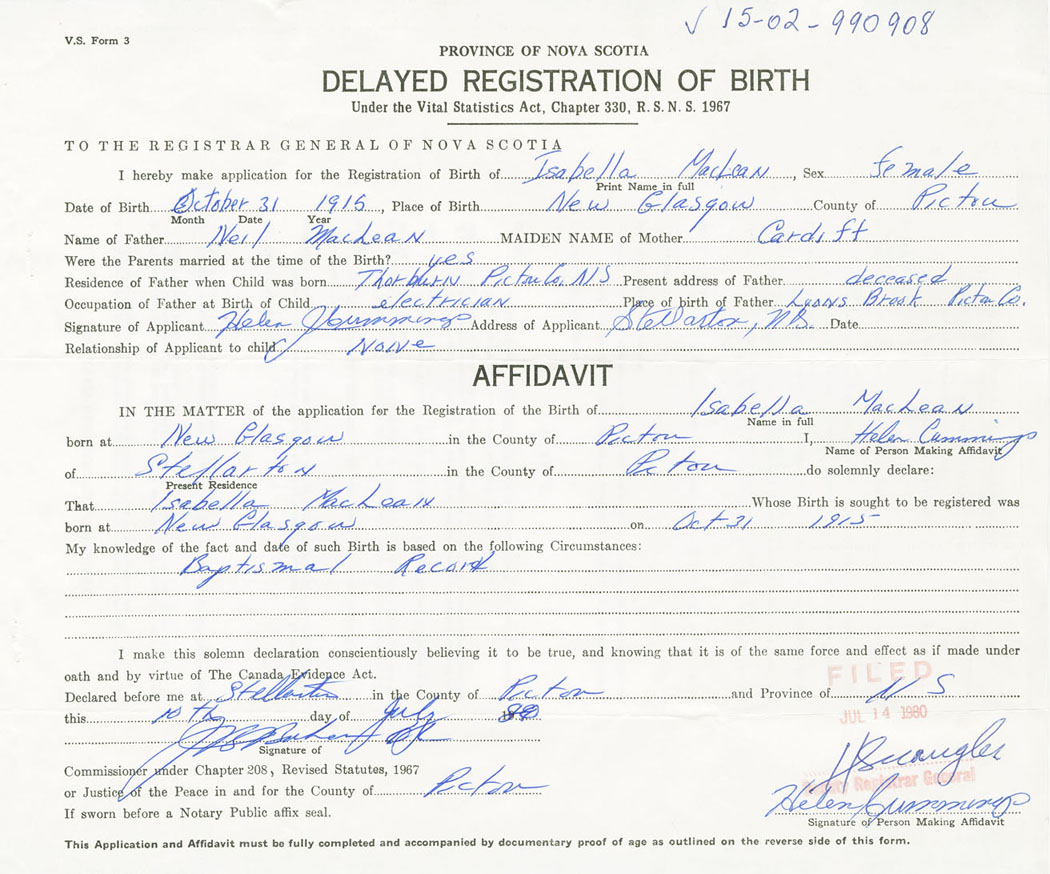 ✓ 15-02-990908
V.S. Form 3
PROVINCE OF NOVA SCOTIA
DELAYED REGISTRATION OF BIRTH
Under the Vital Statistics Act, Chapter 330, R.S.N.S. 1967
TO THE REGISTRAR GENERAL OF NOVA SCOTIA
I hereby make application for the Registration of Birth of Isabella MacLean, Sex female
Print Name in full
Date of Birth October 31 1915, Place of Birth New Glasgow County of Pictou
Month Date Year
Name of Father Neil MacLean MAIDEN NAME of Mother Cardiff
Were the Parents married at the time of the Birth? yes
Residence of Father when Child was born Thorburn Pictou Co. NS Present address of Father deceased
Occupation of Father at Birth of Child electrician Place of birth of Father Lyons Brook Pictou Co.
Signature of Applicant Helen J Cummings Address of Applicant Stellarton, N.S. Date
Relationship of Applicant to child None
AFFIDAVIT
IN THE MATTER of the application for the Registration of the Birth of Isabella MacLean
Name in full
born at New Glasgow in the County of Pictou I, Helen Cummings
Name of Person Making Affidavit
of Stellarton in the County of Pictou do solemnly declare:
Present Residence
That Isabella MacLean Whose Birth is sought to be registered was
born at New Glasgow on Oct 31 1915
My knowledge of the fact and date of such Birth is based on the following Circumstances:
Baptismal Record
I make this solemn declaration conscientiously believing it to be true, and knowing that it is of the same force and effect as if made under
oath and by virtue of The Canada Evidence Act.
FILED
Declared before me at Stellarton in the County of Pictou and Province of N S
this 10th day of July 1980
JUL 14 1980
Signature of
Commissioner under Chapter 208, Revised Statutes, 1967
or Justice of the Peace in and for the County of Pictou
Deputy Registrar General
Helen J Cummings
If sworn before a Notary Public affix seal.
Signature of Person Making Affidavit
This Application and Affidavit must be fully completed and accompanied by documentary proof of age as outlined on the reverse side of this form.